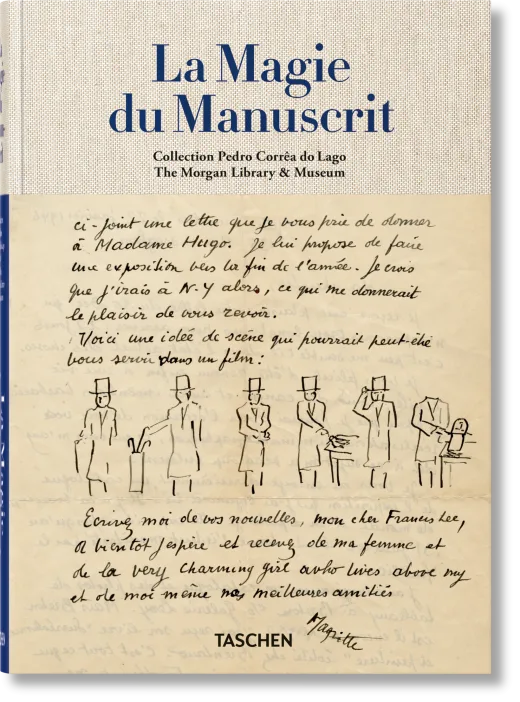 La Magie
du Manuscrit
Collection Pedro Corrêa do Lago
The Morgan Library & Museum
ci-joint une lettre que je vous prie de donner
à Madame Hugo. Je lui propose de faire
une exposition vers la fin de l'année. Je crois
que j'irais à N-Y alors, ce qui me donnerait
le plaisir de vous revoir.
Voici une idée de scène qui pourrait peut-être
vous servir dans un film :
Ecrivez moi de vos nouvelles, mon cher Francis Lee,
à bientôt j'espère et recevez de ma femme et
de la very charming girl who lives above my
et de moi même nos meilleures amitiés
Magritte
TASCHEN